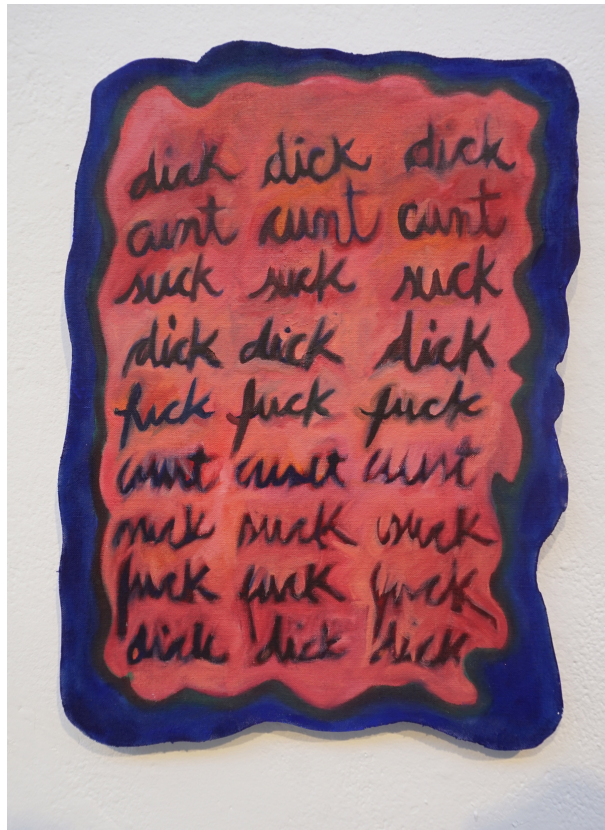 dick dick dick
cunt cunt cunt
suck suck suck
dick dick dick
fuck fuck fuck
cunt cunt cunt
suck suck suck
fuck fuck fuck
dick dick dick